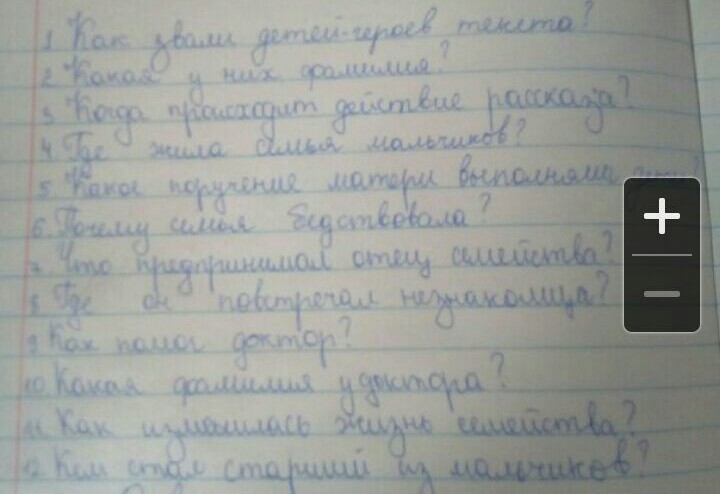 1 Как звали детей-героев текста?
2 Какая у них фамилия?
3 Когда происходит действие рассказа?
4. Где жила семья мальчиков?
5. Какое поручение матери выполняли
6 Почему семья бедствовала?
7. Что предпринимал отец семейства?
8. Где он повстречал незнакомца?
9 Как помог доктор?
10. Какая фамилия у доктора?
11 Как изменилась жизнь семейства?
12 Кем стал старший из мальчиков?